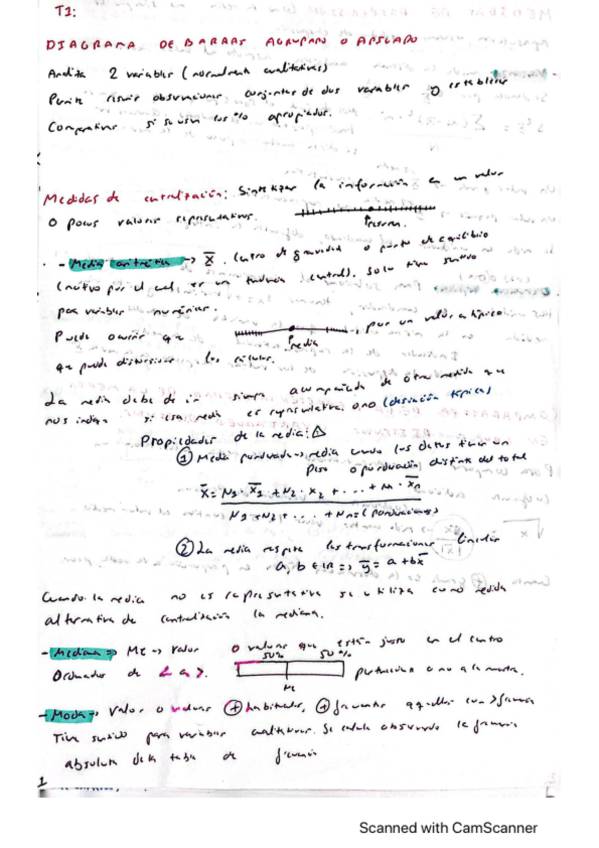 T1:
DIAGRAMA DE BARRAS AGRUPADO O APILADO
Analiza 2 variables (normalmente cualitativas)
Permite resumir observaciones conjuntas de dos variables o establecer
Comparativas si se usan los % apropiados.
Medidas de centralización: Sintetizar la información en un valor
o pocos valores representativos.
- Media aritmética → X̄. Centro de gravidad o punto de equilibrio
(motivo por el cual es un tendencia central). Solo tiene sentido
para variables numéricas.
Puede ocurrir que media, por un valor atípico
que puede distorsionar los cálculos.
La media debe de ir siempre acompañada de otra medida que
nos indique si esa media es representativa o no (desviación típica)
Propiedades de la media:
① Media ponderada → media cuando los datos tienen un
peso o ponderación distinta del total
X̄ = N1 · X̄1 + N2 · X2 + . . . + Nn · X̄n
N1 + N2 + . . . + Nn = (ponderaciones)
② La media respeta las transformaciones lineales
a, b ∈ IR => ȳ = a + bx̄
Cuando la media no es representativa se utiliza como medida
alternativa de centralización la mediana.
- Mediana => Me → Valor o valores que están justo en el centro
50% 50%
Ordenados de < a >. pertenezcan o no a la muestra.
Me
- Moda → Valor o valores ⊕ habituales, ⊕ frecuentes aquellos con > frecuencia
Tiene sentido para variables cualitativas. Se calcula observando la frecuencia
absoluta de la tabla de frecuencia
1
Scanned with CamScanner